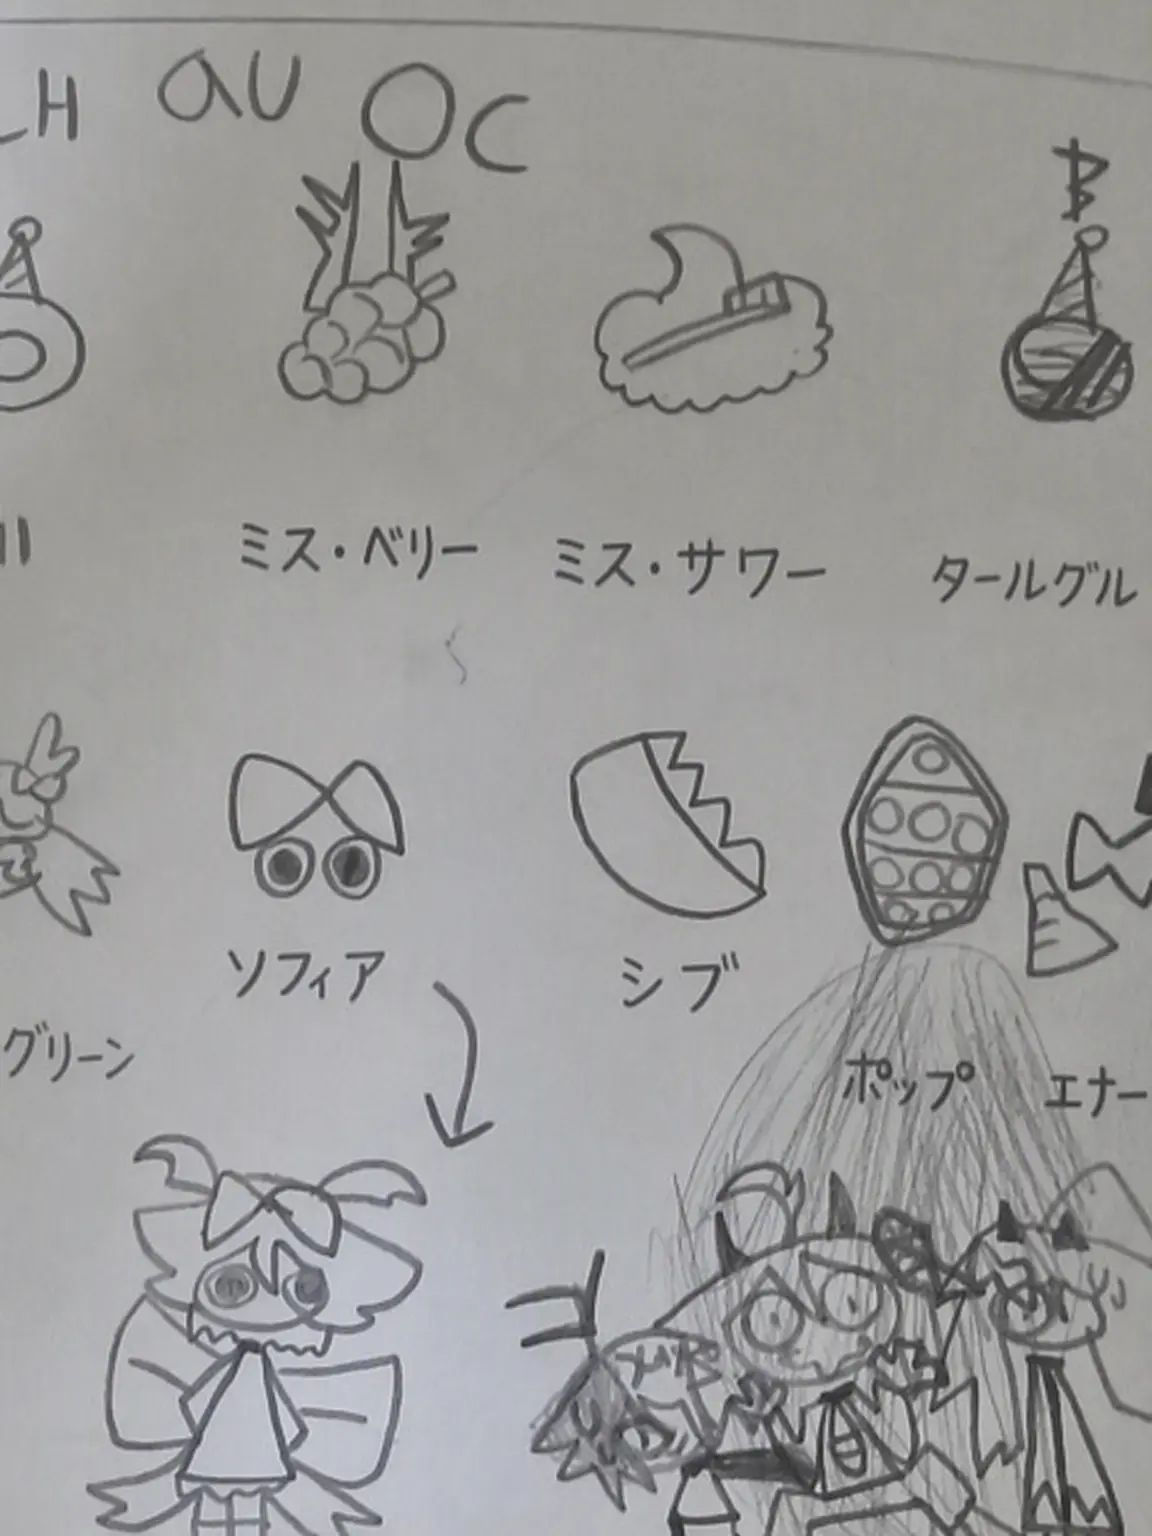 LH au OC
ミス・ベリー ミス・サワー タールグル
ソフィア シブ
グリーン ポップ エナー